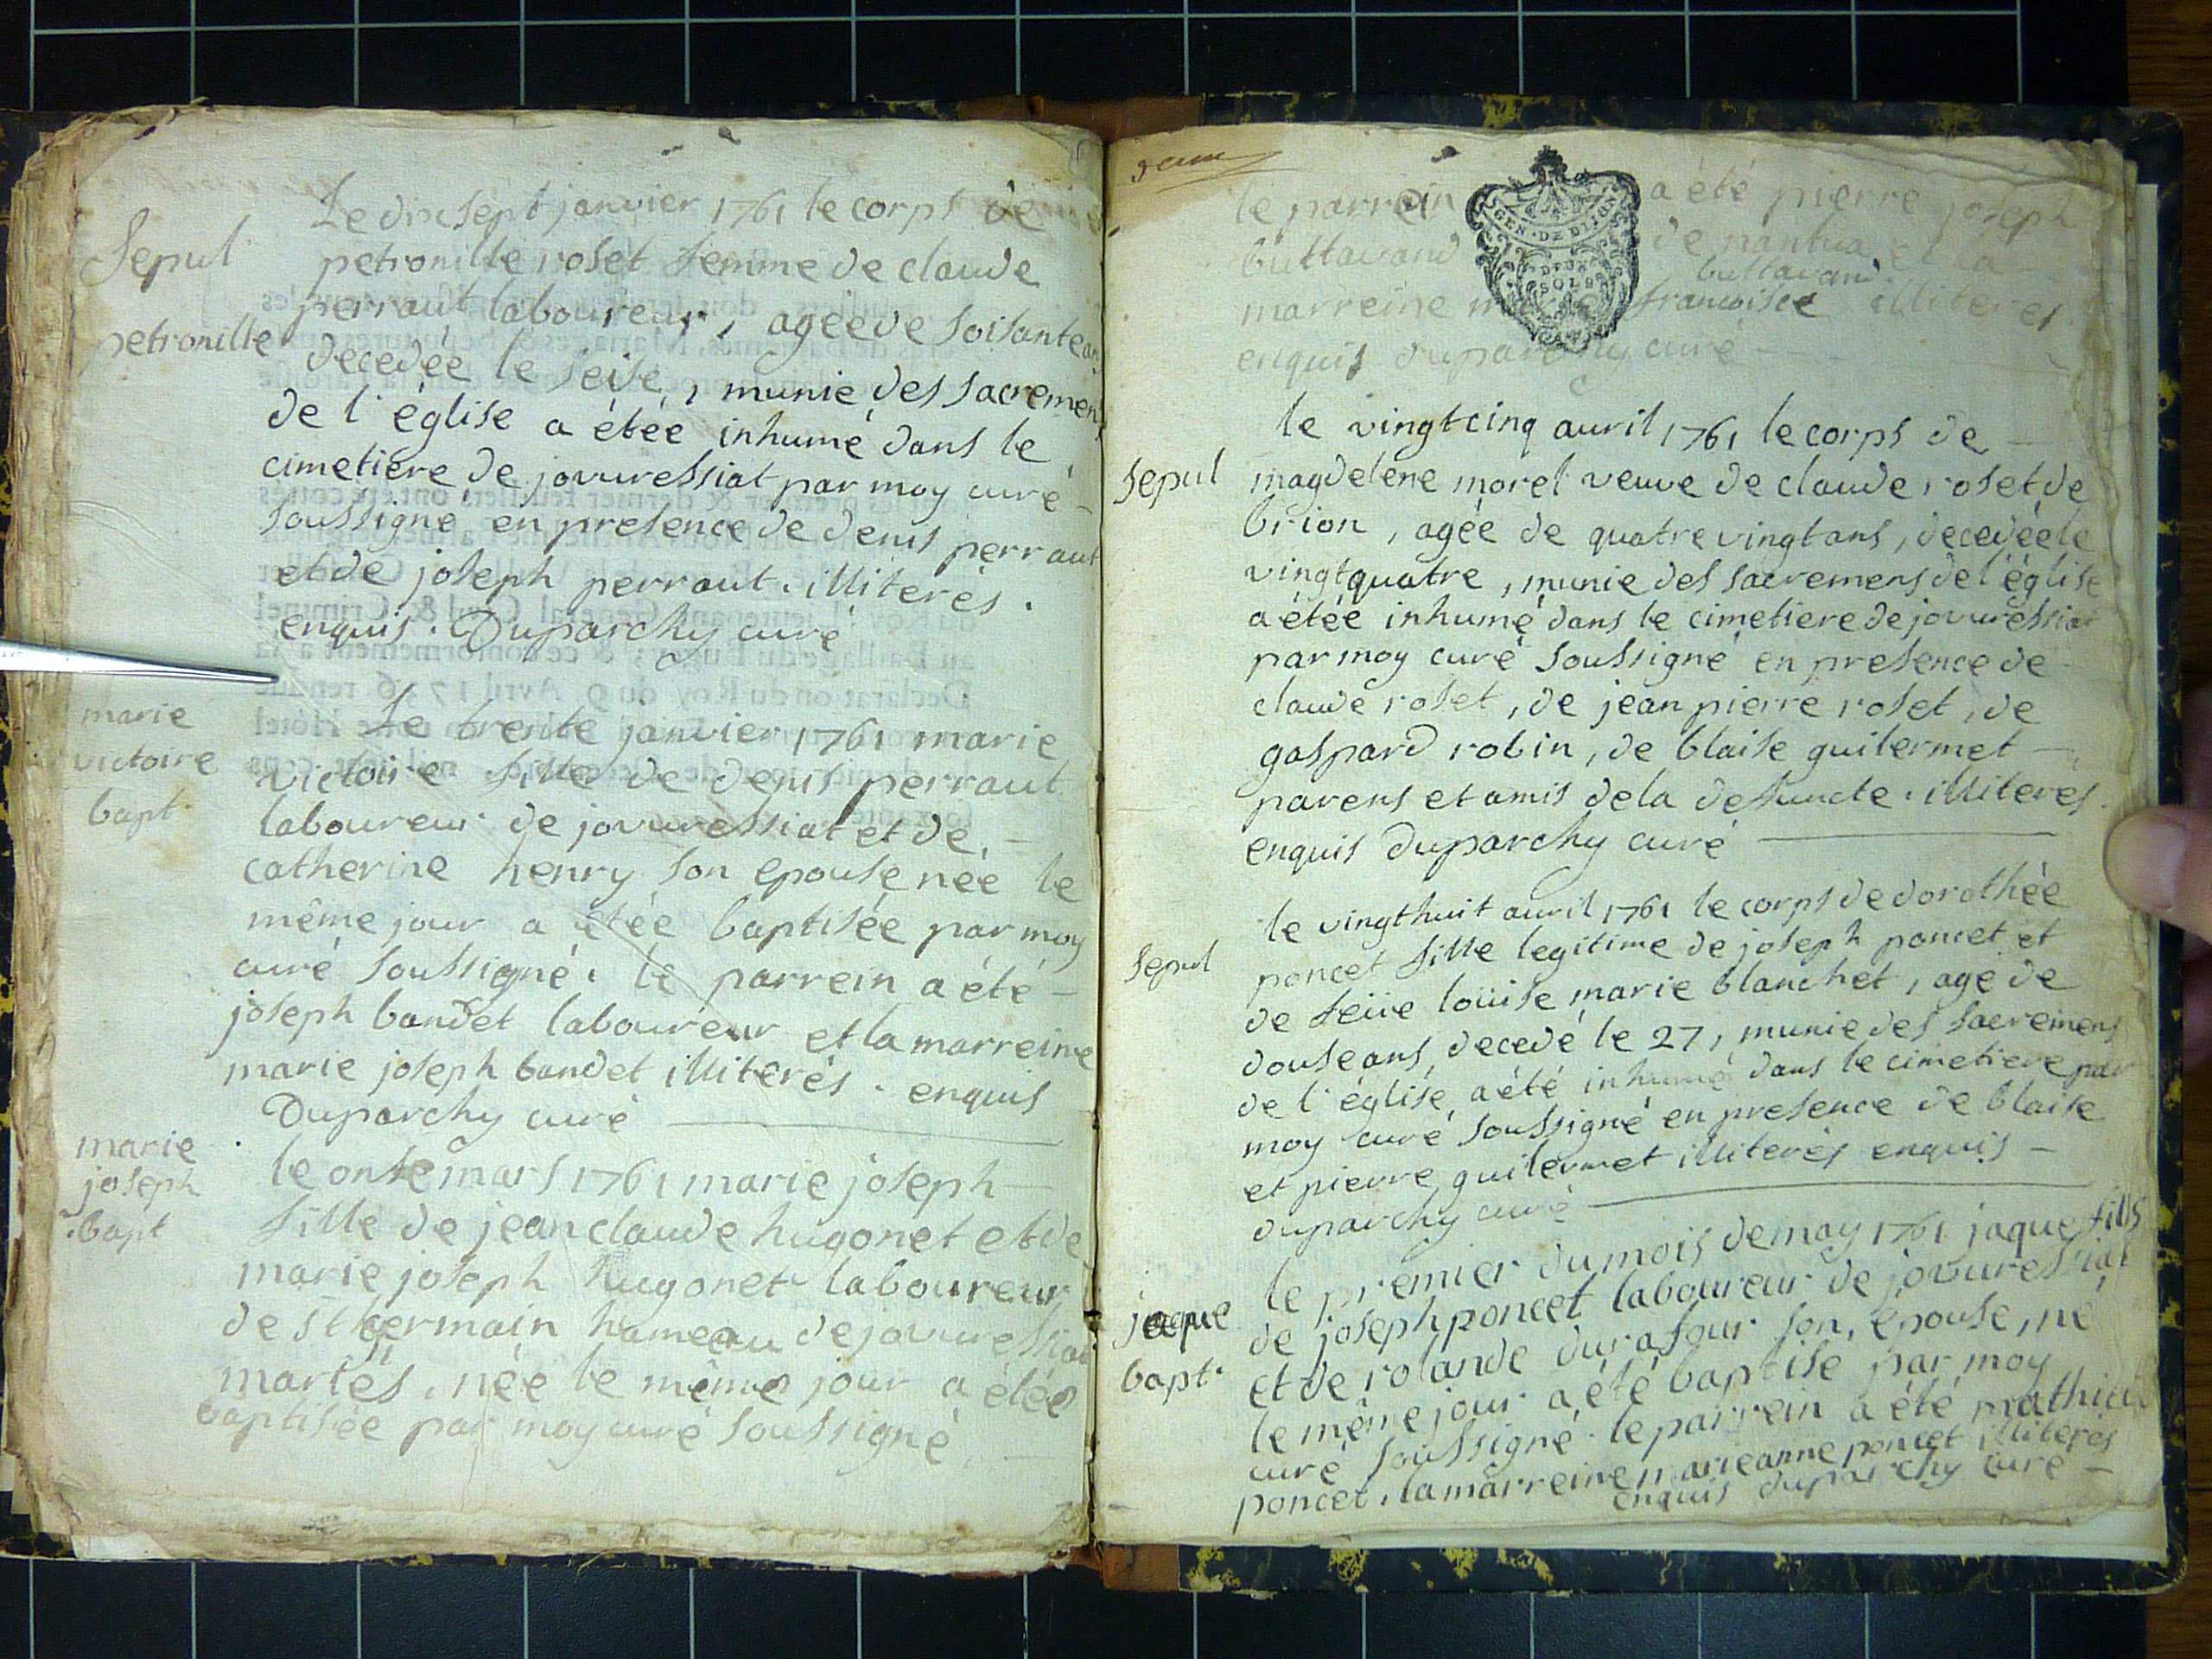 Le dixsept janvier 1761 le corps de
Sepul petronille roset femme de claude
perraut laboureur, agée de soisante an
petronille decedée le seise, munie des sacremens
de l'église a étée inhumé dans le
cimetiere de jovuressiat par moy curé
soussigné en presence de denis perraut
et de joseph perraut. illiterés.
enquis. Duparchy curé
marie Le trente janvier 1761 marie
victoire victoire fille de denis perraut
bapt laboureur de jovuressiat et de
catherine henry son epouse née le
même jour a étée baptisée par moy
curé soussigné. le parrein a été
joseph bandet laboureur et la marreine
marie joseph bandet illiterés. enquis
Duparchy curé
marie
joseph le onse mars 1761 marie joseph
bapt fille de jean claude hugonet et de
marie joseph hugonet laboureur
de st germain hameau de jovuressiat
martés, née le même jour a étée
baptisée par moy curé soussigné
le parrein a été pierre joseph
buttavand de nantua et la
buttavand
marreine marie francoise illiterés
enquis duparchy curé
GEN. DE DIJON
DEUX
SOLS
le vingtcinq auril 1761 le corps de
sepul magdelene morel veuve de claude roset de
brion, agée de quatre vingt ans, decedée le
vingtquatre, munie des sacremens de l'église
a étée inhumé dans le cimetiere de jovuressiat
par moy curé soussigné en presence de
claude roset, de jean pierre roset, de
gaspard robin, de blaise guilermet
parens et amis de la defuncte. illiteres.
enquis duparchy curé
le vingthuit auril 1761 le corps de dorothée
sepul poncet fille legitime de joseph poncet et
de feüe loüise marie blanchet, agé de
douse ans, decedé le 27, munie des sacremens
de l'église a été inhumé dans le cimetiere par
moy curé soussigné en presence de blaise
et pierre guilermet illiterés enquis
duparchy curé
le premier du mois de may 1761 jaque fils
jaque de joseph poncet laboureur de jovuressiat
bapt. et de rolande durafour son épouse, né
le même jour a été baptisé par moy
curé soussigné. le parrein a été mathieu
poncet, la marreine marie anne poncet illiterés
enquis duparchy curé